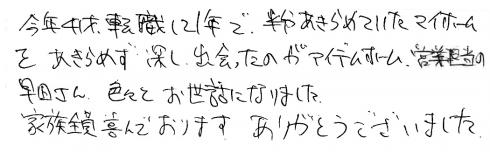 今年41才、転職して1年で、半分あきらめていたマイホーム
を あきらめず 探し、出会ったのがアイデムホーム、営業担当の
早田さん、色々と お世話になりました。
家族全員 喜んでおります ありがとうございました。